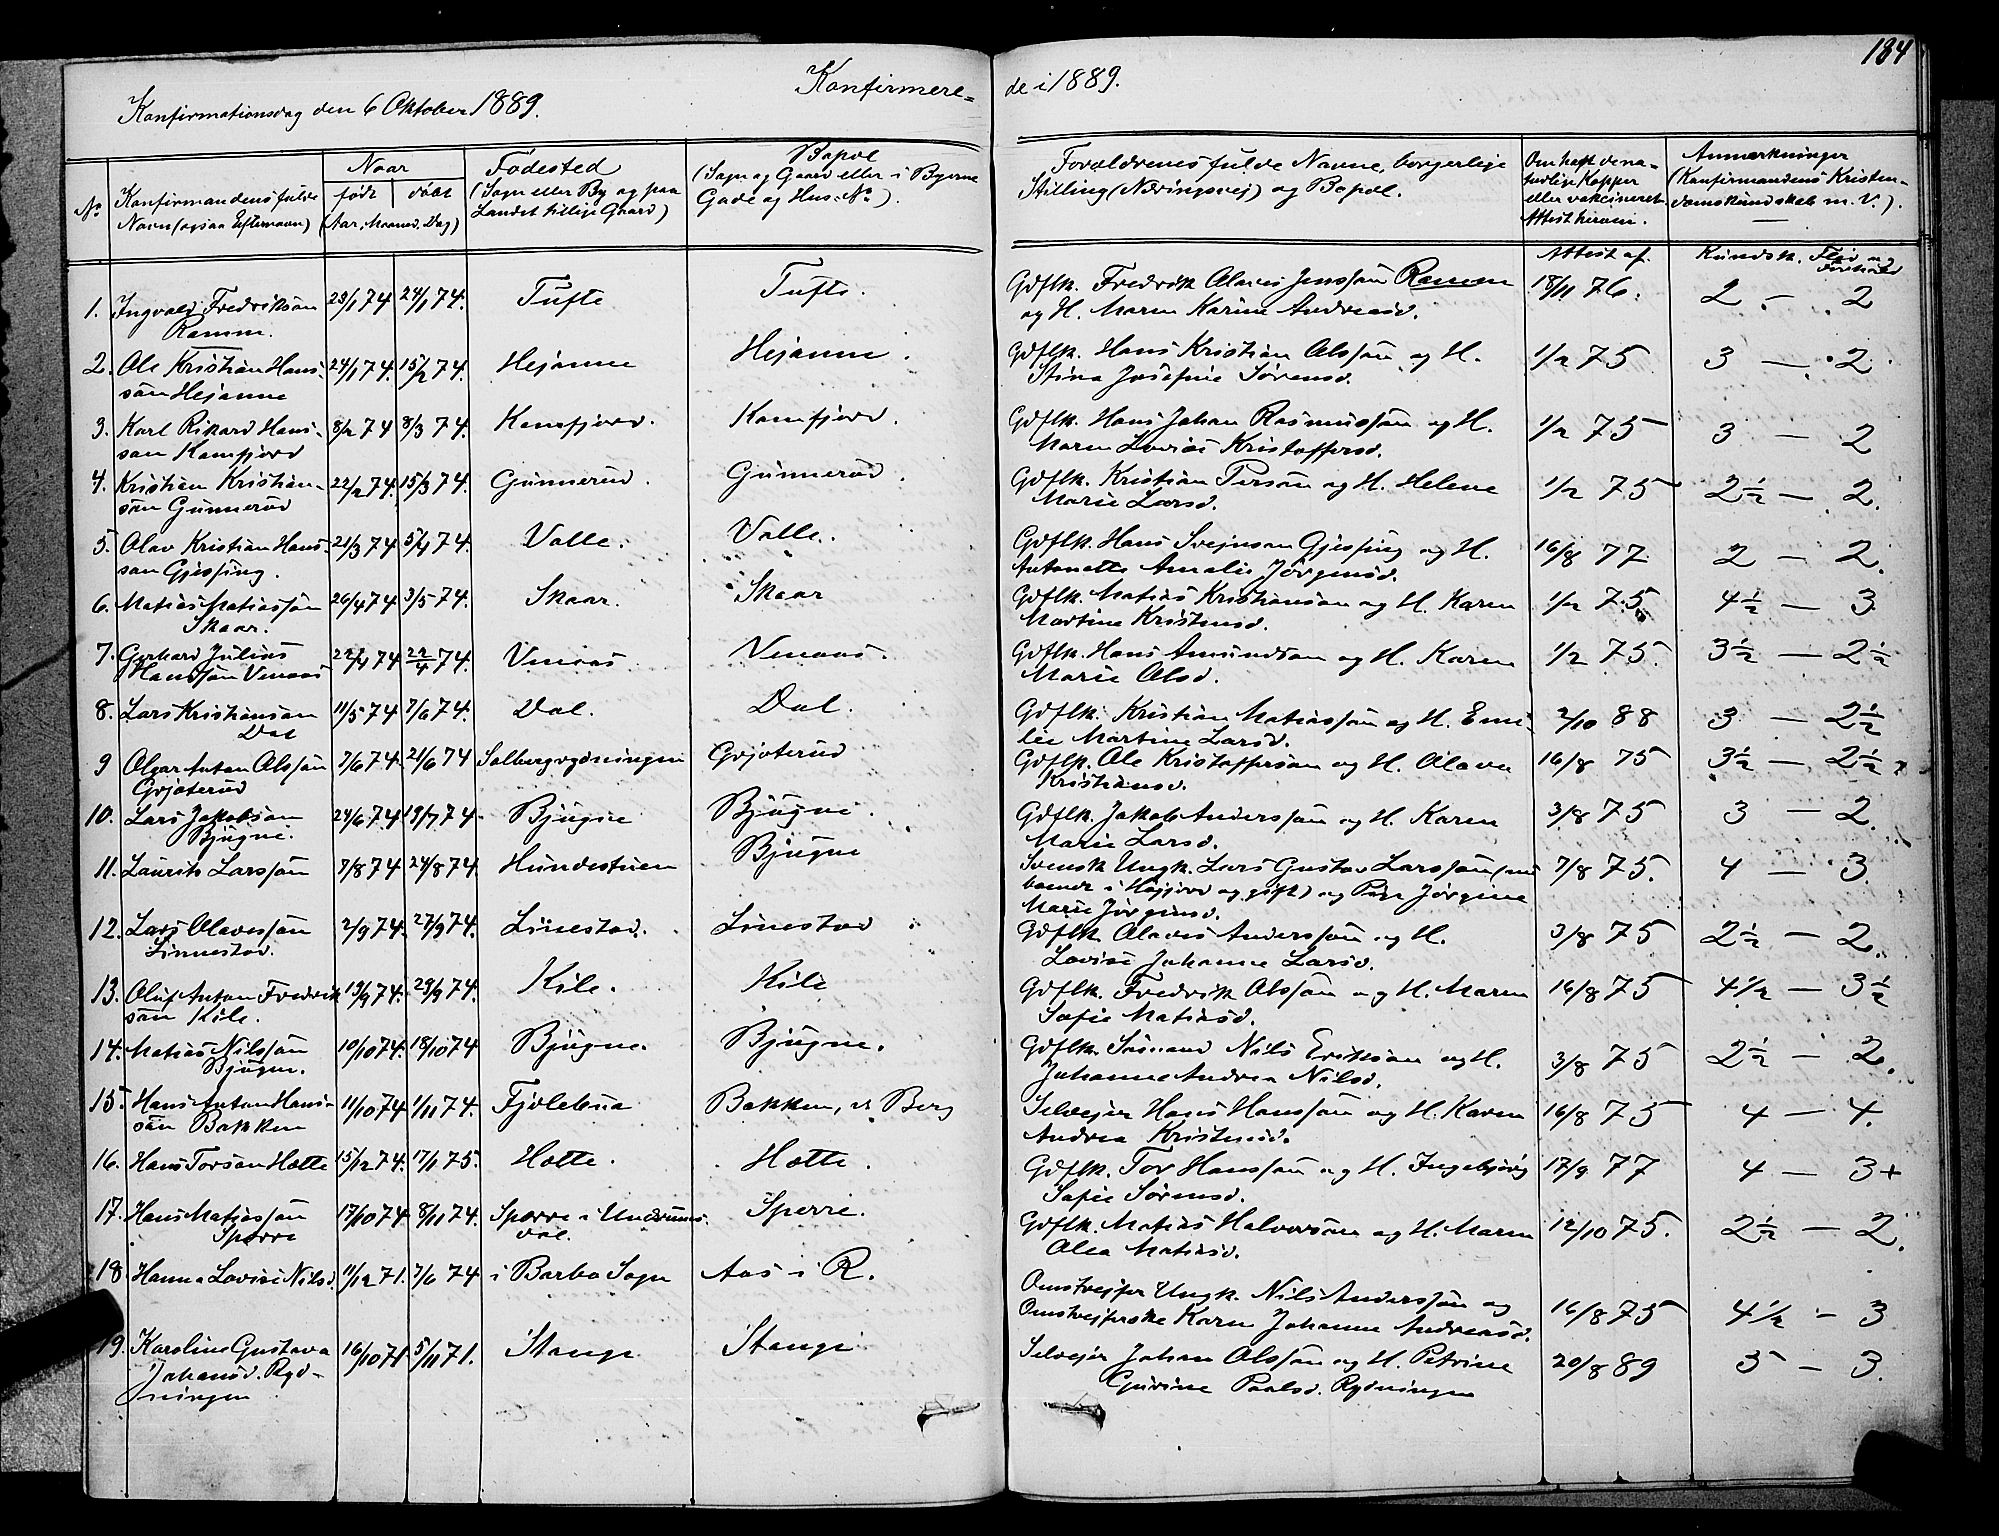 184
Konfirmere= de i 1889.
Konfirmationsdag den 6 Oktober 1889.
No
Konfirmandens fulde
Navn (ogsaa Efternavn)
Naar
født døbt
(Aar, Maaned, Dag)
Fødested
(Sogn eller By og paa
Landet tillige Gaard)
Bopæl
(Sogn og Gaard eller i Byerne
Gade og Hus-No).
Forældrenes fulde Navne, borgerlige
Stilling (Næringsvej) og Bopæl.
Om haft de na-
turlige Kopper
eller vakcineret.
Attest herom.
Anmærkninger
(Konfirmandens Kristen-
domskundskab m. V.).
Attest af.
Kundsk. Flid og
Forhold
1. Ingvald Fredriksøn 23/1 74 24/1 74. Tufte Tufte. Gdflk. Fredrik Olaves Jenssøn Ramm 18/11 76. 2 - 2
Ramm. og H. Maren Karine Andreasd.
2. Ole Kristian Hans- 24/1 74. 15/2 74. Hejanne Hejanne. Gdflk. Hans Kristian Olssøn og H. 1/2 75 3 - 2
søn Hejanne Stina Josefine Sørensd.
3. Karl Rikard Hans- 8/2 74 8/3 74. Kamfjord. Kamfjord. Gdflk. Hans Johan Rasmussøn og H. 1/2 75 3 - 2
søn Kamfjord Maren Lovise Kristoffersd.
4. Kristian Kristian- 22/2 74. 15/3 74. Gunnerud. Gunnerød. Gdflk. Kristian Persøn og H. Helene 1/2 75 2½ - 2.
søn Gunnerød Marie Larsd.
5. Olav Kristian Hans- 21/3 74 5/4 74. Valle. Valle. Gdflk. Hans Svejnsøn Gjessing og H. 16/8 77 2 - 2.
søn Gjessing. Antonette Amalie Jørgensd.
6. Matias Matiassøn 26/4 74 3/5 74. Skaar. Skaar Gdflk. Matias Kristiansøn og H. Karen 1/2 75 4½ - 3
Skaar. Martine Kristensd.
7. Gerhard Julius 22/4 74 22/4 74. Venaas Venaas. Gdflk. Hans Amundsøn og H. Karen 1/2 75. 3½ - 2½
Hanssøn Venaas Marie Olsd.
8. Lars Kristiansøn 11/5 74 7/6 74. Dal. Dal. Gdflk. Kristian Matiassøn og H. Emi- 2/10 88 3 - 2½
Dal lie Martine Larsd.
9 Olgar Anton Olssøn 7/6 74. 21/6 74 Solbergrydningen Gojoterud Gdflk. Ole Kristoffersøn og H. Olava 16/8 75 3½ - 2½
Gojoterud Kristiansd.
10. Lars Jakobsøn 24/6 74 19/7 74 Bjugne Bjugne. Gdflk. Jakob Anderssøn og H. Karen 3/8 75 3 - 2.
Bjugne. Marie Larsd.
11. Laurits Larssøn 7/8 74 24/8 74. Hundestuen Bjugne Svensk Ungk. Lars Gustav Larssøn (nu 7/8 75. 4 - 3.
boende i Højjord og gift) og Pige Jørgine
Marie Jørgensd.
12. Lars Olavessøn 2/9 74. 27/9 74. Linestad. Linestad Gdflk. Olaves Anderssøn og H. 3/8 75 2½ - 2.
Linnestad. Lovise Johanne Larsd.
13. Oluf Anton Fredrik 13/9 74. 29/9 74. Kile. Kile Gdflk. Fredrik Olssøn og H. Maren 16/8 75 4½ - 3½
søn Kile. Sofie Matiasd.
14. Matias Nilssøn 10/10 74. 18/10 74 Bjugne. Bjugne. Gdflk. Nils Eriksøn og H. 3/8 75 2½ - 2.
Bjugne. Johanne Andrea Nilsd.
15. Hans Anton Hans- 11/10 74 1/11 74. Fjølebua Bakken, v Berg Selvejer Hans Hanssøn og H. Karen 16/8 75 4 - 4.
søn Bakken Andrea Kristensd.
16. Hans Torsøn Hotte 15/12 74. 17/1 75. Hotte. Hotte. Gdflk. Tor Hanssøn og H. Ingebjørg 17/9 77 4 - 3+
Sofie Sørensd.
17. Hans Matiassøn 17/10 74 8/11 74. Sperre i Undrums- Sperre. Gdflk. Matias Halvorsøn og H. Maren 12/10 75. 2½ - 2.
Sperre dal. Olea Matiasd.
18. Hanna Lovise Nilsd. 11/12 71. 7/6 74 i Barbo Sogn Aas i R. Omstrejfer Ungk. Nils Anderssøn og 16/8 75 4½ - 3
Omstrejferske Karen Johanne Andreasd.
19. Karoline Gustava 16/10 71 5/11 71. Stange Stange Selvejer Johan Olssøn og H. Petrine 20/8 89 5 - 3.
Johansd. Ryd- Gurine Paalsd. Rydningen
ningen